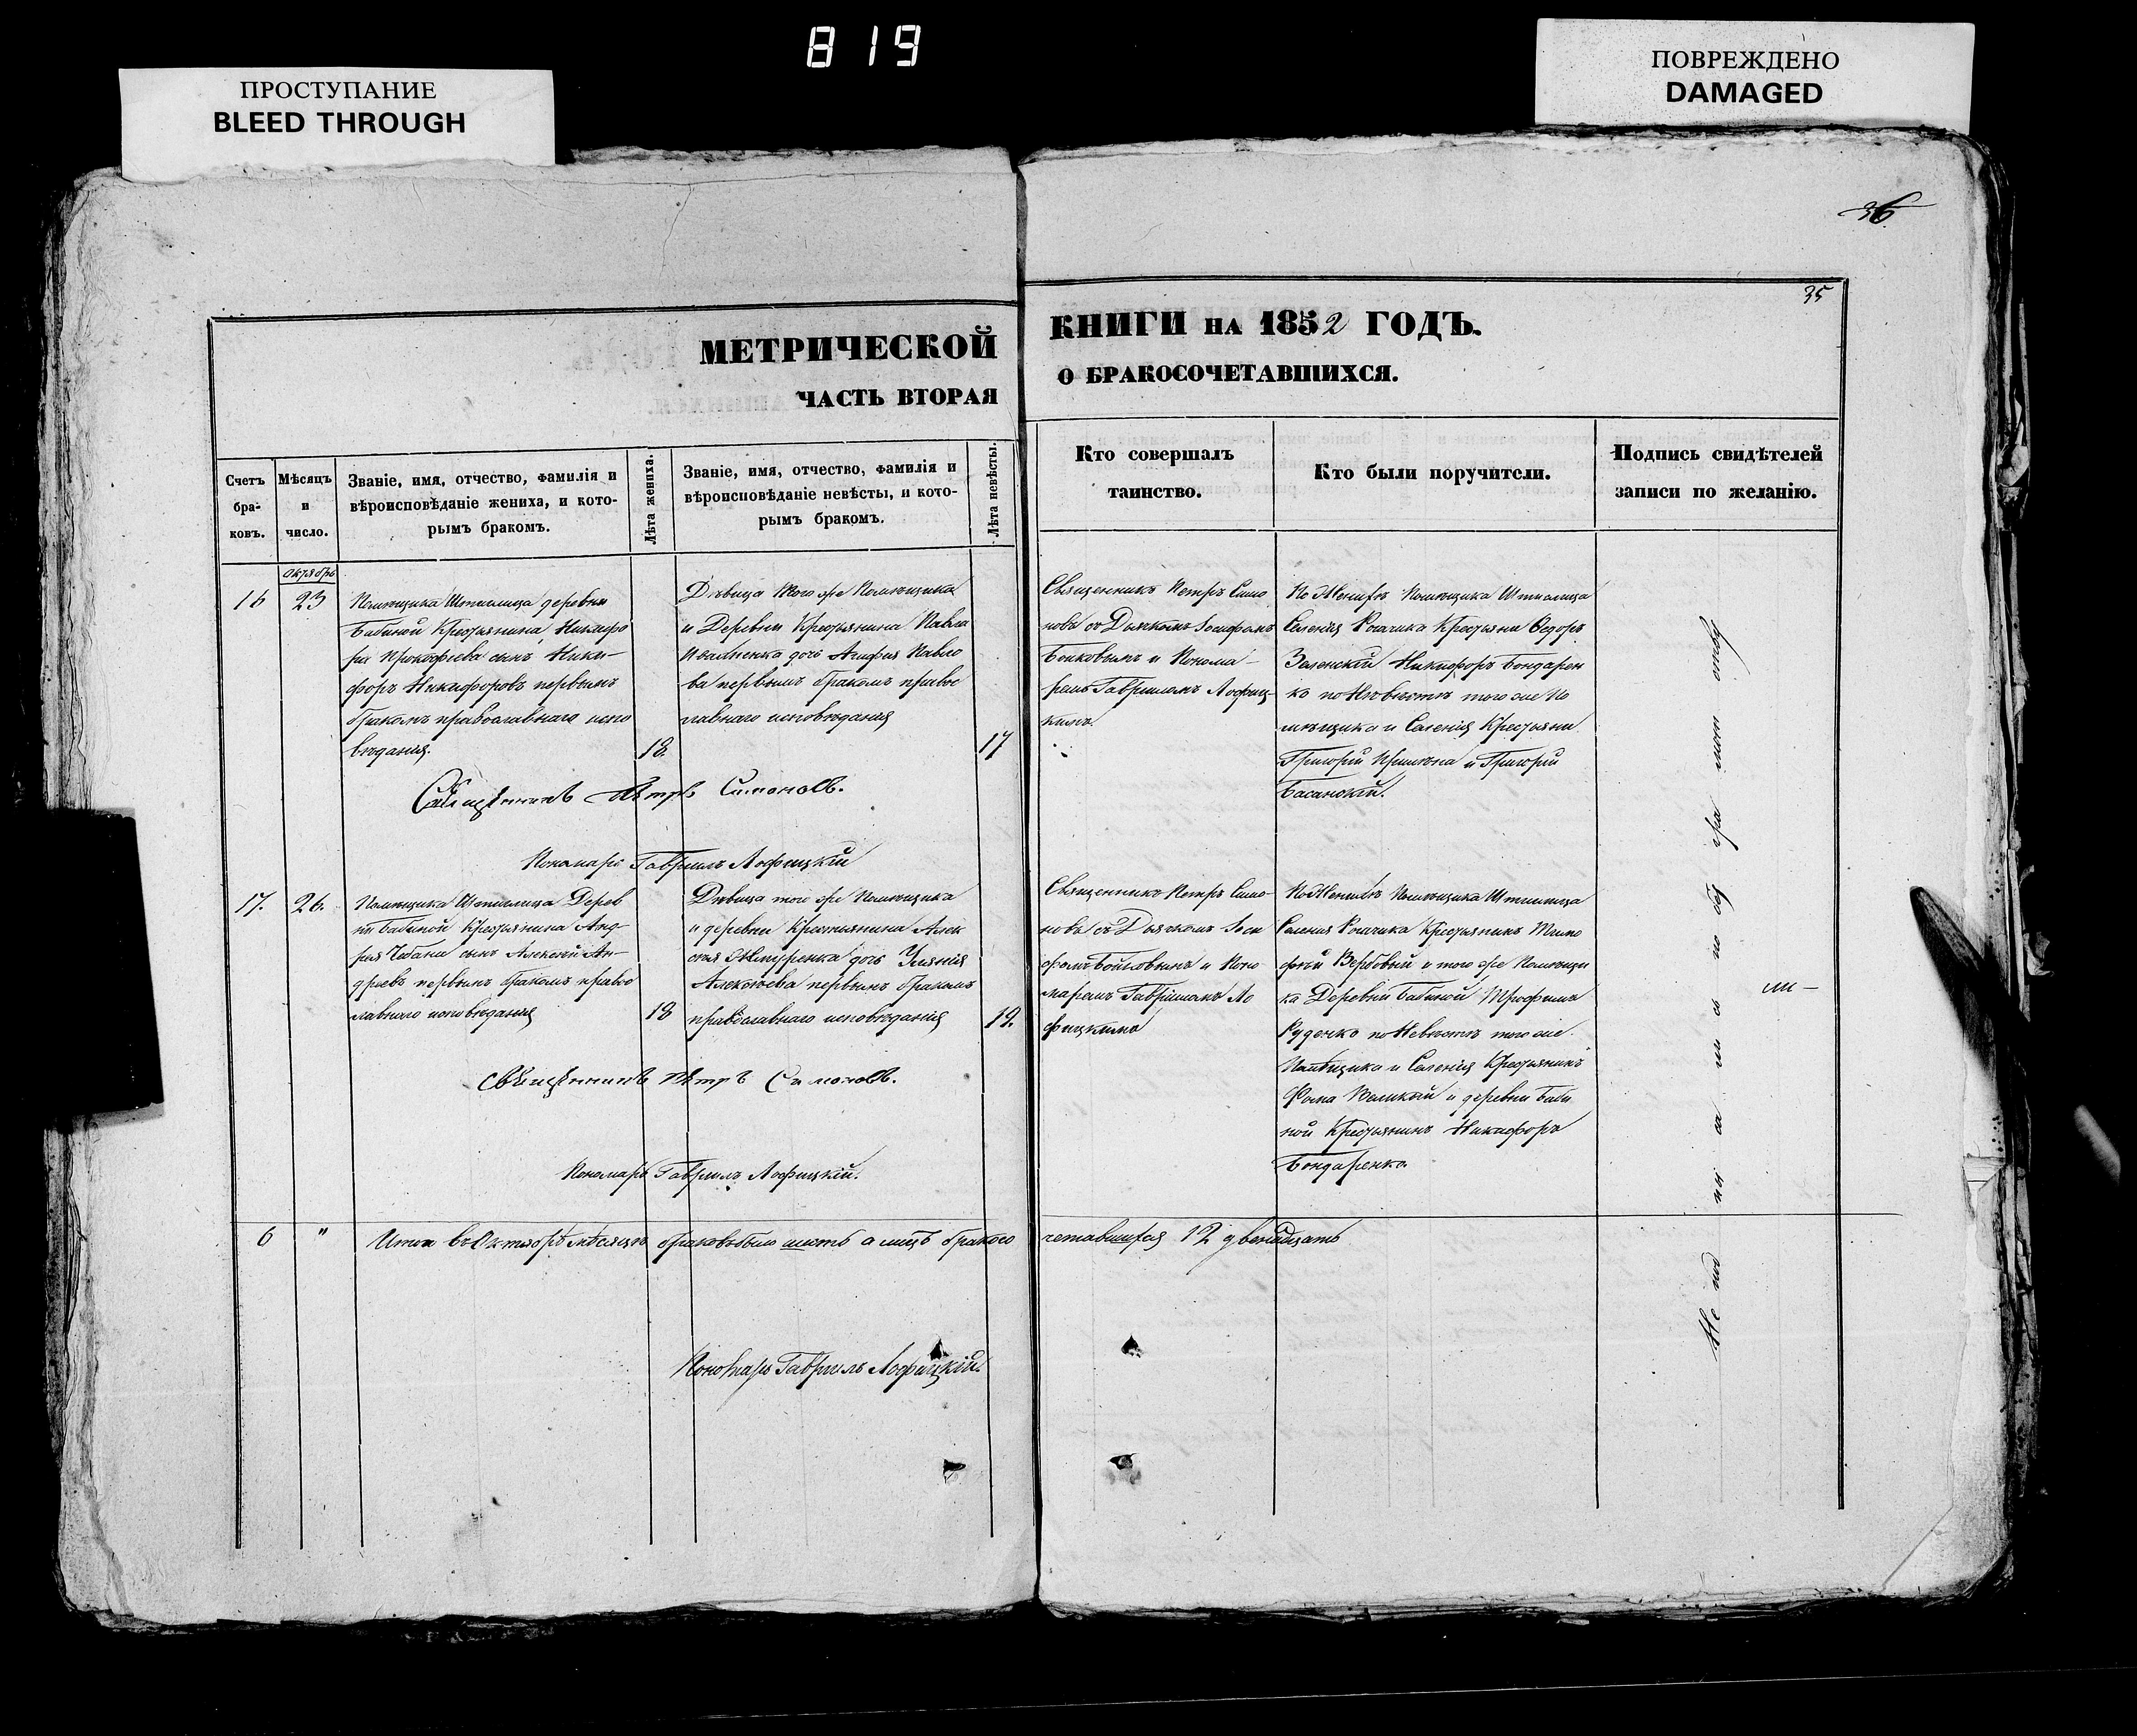 819
ПРОСТУПАНИЕ
BLEED THROUGH
ПОВРЕЖДЕНО
DAMAGED
36
35
МЕТРИЧЕСКОЙ
ЧАСТЬ ВТОРАЯ
КНИГИ НА 1852 ГОДЪ.
О БРАКОСОЧЕТАВШИХСЯ.
Счетъ
бра-
ковъ.
Мѣсяцъ
и
число.
Званіе, имя, отчество, фамилія и
вѣроисповѣданіе жениха, и кото-
рымъ бракомъ.
Лѣта жениха.
Званіе, имя, отчество, фамилія и
вѣроисповѣданіе невѣсты, и кото-
рымъ бракомъ.
Лѣта невѣсты.
Кто совершалъ
таинство.
Кто были поручители.
Подпись свидѣтелей
записи по желанію.
Октябрь
16
23
Помѣщика деревни
Бабиной Крестьянина Никифо
ра Прокофьева сынъ Ники-
форъ Никифоровъ первымъ
бракомъ православнаго испо
вѣданія.
18.
Дѣвица того же Помѣщика
и Деревни Крестьянина Павла
дочь Павло
ва первымъ бракомъ право
славнаго исповѣданія
17
Священникъ Петръ Симо
новъ съ Дьячкомъ Іосифомъ
Бойковымъ и Понома-
ремъ Гавріиломъ Лофиц
кимъ
По Женихѣ Помѣщика
Селенія Рогачика Крестьяни Ѳедоръ
Зеленскій Никифоръ Бондарен
ко по Невѣстѣ того же По
мѣщика и Селенія Крестьяни
Григорій и Григорій
Басанскій.
Священникъ Петръ Симоновъ.
Пономарь Гавріилъ Лофицкій
17.
26.
Помѣщика Дерев
ни Бабиной Крестьянина Анд-
рея Чабана сынъ Алексѣй Ан-
дреевъ первымъ бракомъ право
славнаго исповѣданія
18
Дѣвица того же Помѣщика
и деревни Крестьянина Алек
сѣя дочь Уліянія
Алексѣева первымъ бракомъ
православнаго исповѣданія
19.
Священникъ Петръ Симо-
новъ съ Дьячкомъ Іоси
фомъ Бойковымъ и Поно
маремъ Гавріиломъ Ло
фицкимъ
По Женихѣ Помѣщика
Селенія Рогачика Крестьянинъ Тимо
фѣй Вербовый и того же Помѣщи
ка Деревни Бабиной Трофимъ
Руденко по Невѣстѣ того же
Помѣщика и Селенія Крестьянинъ
Фома Великій и деревни Баби
ной Крестьянинъ Никифоръ
Бондаренко
Священникъ Петръ Симоновъ.
Пономарь Гавріилъ Лофицкій.
6
"
Итого въ Октябрѣ мѣсяцѣ браковъ было шесть а лицъ бракосо
четавшихся 12 двенадцать
Пономарь Гавріилъ Лофицкій.